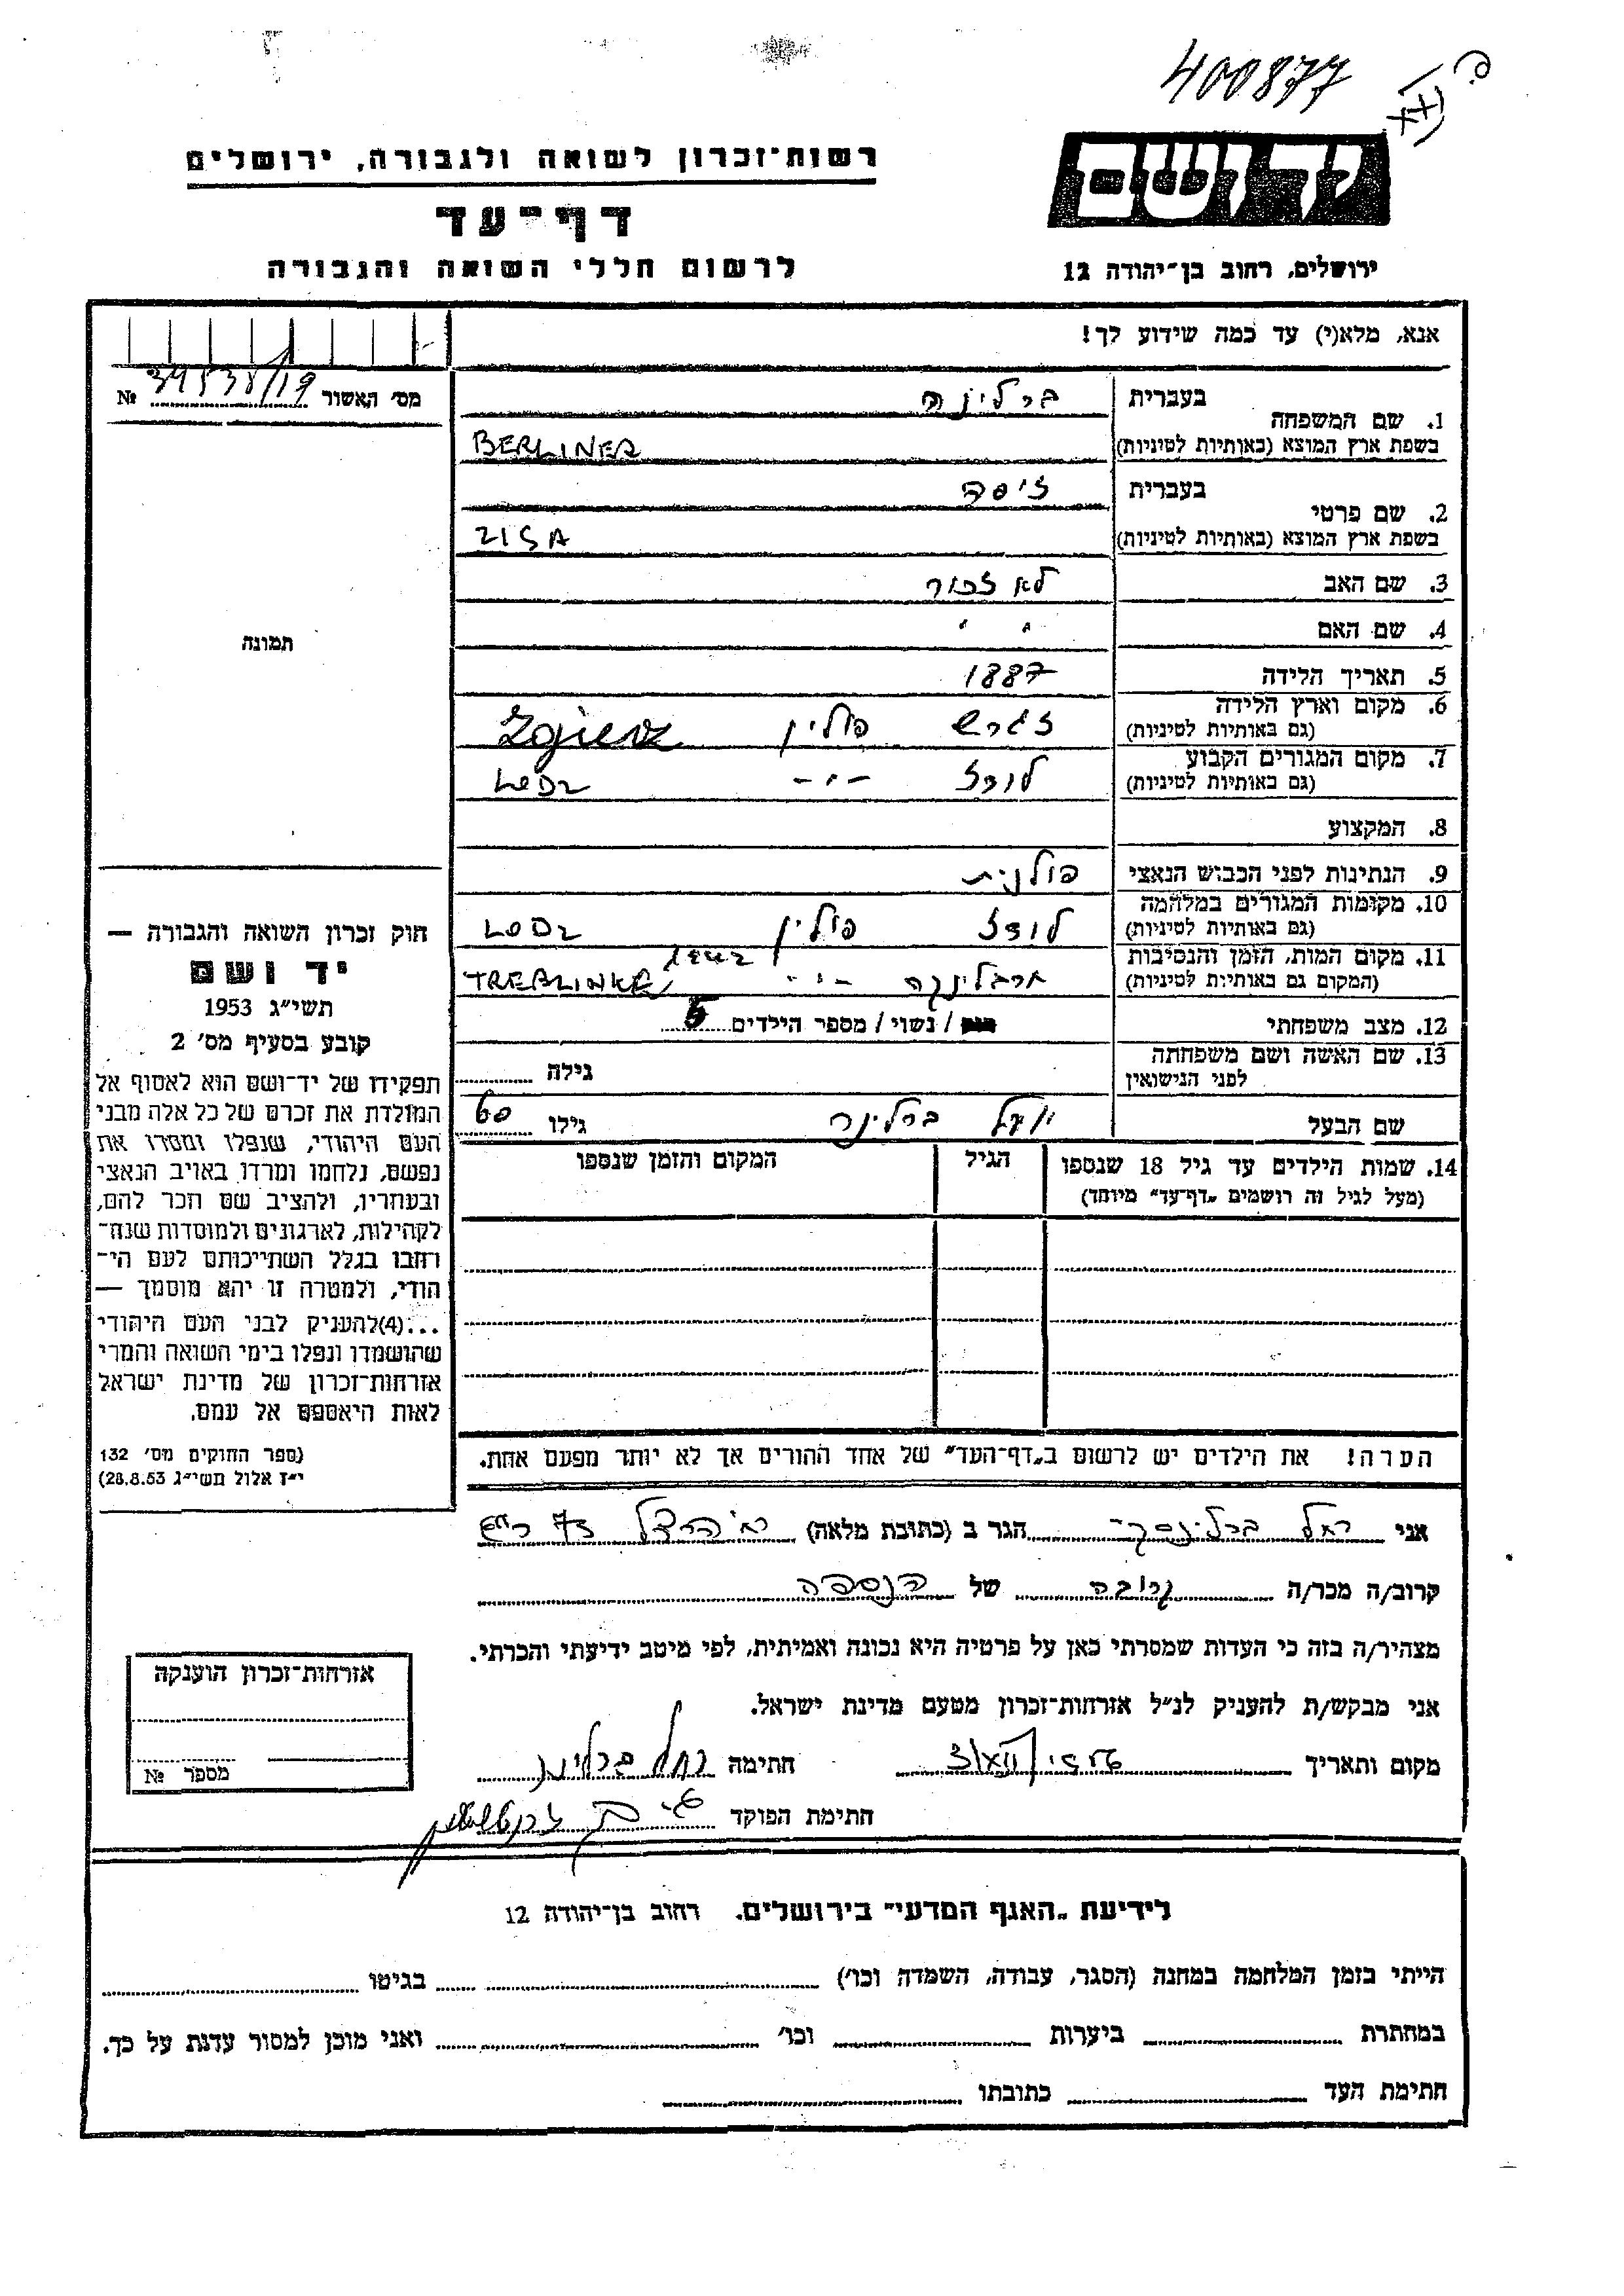 400877
יד ושם
רשות־זכרון לשואה ולגבורה, ירושלים
דף־עד
לרשום חללי השואה והגבורה
ירושלים, רחוב בן־יהודה 12
אנא, מלא(י) עד כמה שידוע לך!
מס׳ האשור №
1. שם המשפחה
בעברית
ברלינר
בשפת ארץ המוצא (באותיות לטיניות)
BERLINER
2. שם פרטי
בעברית
זיסה
בשפת ארץ המוצא (באותיות לטיניות)
ZISA
3. שם האב לא זכור
4. שם האם " "
5. תאריך הלידה 1887
6. מקום וארץ הלידה
(גם באותיות לטיניות)
זגרש פולין Zgierz
7. מקום המגורים הקבוע
(גם באותיות לטיניות)
לודז -"- LODZ
8. המקצוע
9. הנתינות לפני הכבוש הנאצי פולנית
10. מקומות המגורים במלחמה
(גם באותיות לטיניות)
לודז פולין LODZ
11. מקום המות, הזמן והנסיבות
(המקום גם באותיות לטיניות)
טרבלינקה -"- TREBLINKA
12. מצב משפחתי / נשוי / מספר הילדים 5
13. שם האשה ושם משפחתה
לפני הנישואין
גילה
שם הבעל ברלינר גילו 60
14. שמות הילדים עד גיל 18 שנספו
(מעל לגיל זה רושמים „דף־עד״ מיוחד)
הגיל
המקום והזמן שנספו
תמונה
חוק זכרון השואה והגבורה —
יד ושם
תשי״ג 1953
קובע בסעיף מס׳ 2
תפקידו של יד־ושם הוא לאסוף אל
המולדת את זכרם של כל אלה מבני
העם היהודי, שנפלו ומסרו את
נפשם, נלחמו ומרדו באויב הנאצי
ובעוזריו, ולהציב שם וזכר להם,
לקהילות, לארגונים ולמוסדות שנח־
רבו בגלל השתייכותם לעם הי־
הודי, ולמטרה זו יהא מוסמך —
...(4)להעניק לבני העם היהודי
שהושמדו ונפלו בימי השואה והמרי
אזרחות־זכרון של מדינת ישראל
לאות היאספם אל עמם.
(ספר החוקים מס׳ 132
י״ז אלול תשי״ג 28.8.53)
הערה! את הילדים יש לרשום ב„דף־העד״ של אחד ההורים אך לא יותר מפעם אחת.
אני רחל הגר ב (כתובת מלאה)
קרוב/ה מכר/ה קרובה של הנספה
מצהיר/ה בזה כי העדות שמסרתי כאן על פרטיה היא נכונה ואמיתית, לפי מיטב ידיעתי והכרתי.
אני מבקש/ת להעניק לנ״ל אזרחות־זכרון מטעם מדינת ישראל.
מקום ותאריך חתימה רחל
חתימת הפוקד
אזרחות־זכרון הוענקה
מספר №
לידיעת „האגף המדעי״ בירושלים, רחוב בן־יהודה 12
הייתי בזמן המלחמה במחנה (הסגר, עבודה, השמדה וכו׳) בגיטו
במחתרת ביערות וכו׳ ואני מוכן למסור עדות על כך.
חתימת העד כתובתו